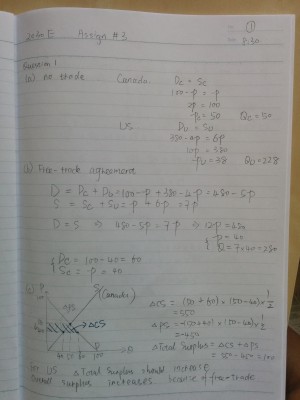 Assign #3
①
8:30
Question 1
(a) no trade Canada Dc = Sc
100-p = p
2p = 100
Pc = 50
US Du = Su
380-4p = 6p
10p = 380
Pu = 38 Qu = 228
(b) Free-trade agreement
D = Dc + Du = 100-p + 380-4p = 480-5p
S = Sc + Su = p + 6p = 7p
D = S ⇒ 480-5p = 7p ⇒ 12p = 480
p = 40
Q = 7×40 = 280
Dc = 100-40 = 60
Sc = p = 40
(c)
S (Canada)
ΔPS
ΔCS
ΔCS = (50+60)×(50-40)×1/2
= 550
ΔPS = -(50+40)×(50-40)×1/2
= -450
ΔTotal Surplus = ΔCS + ΔPS
= 550-450 = 100
For US Δ Total Surplus should increase
Overall surplus increases because of free-trade